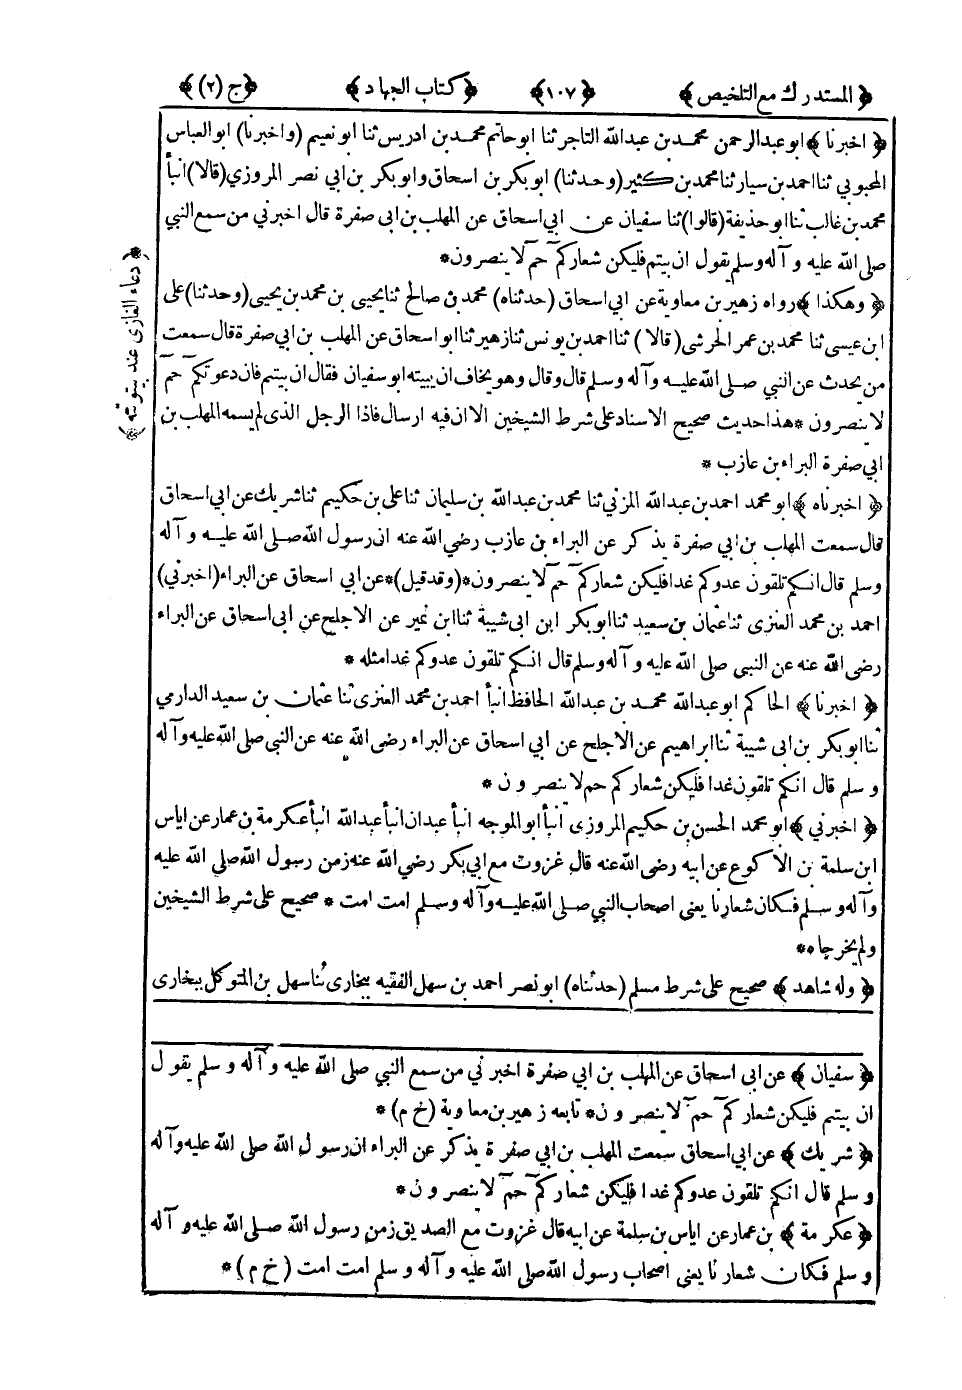 ﴿ المستدرك مع التلخيص ﴾ ﴿ ١٠٧ ﴾ ﴿ كتاب الجهاد ﴾ ﴿ ج (٢) ﴾
﴿ اخبرنا ﴾ ابو عبد الرحمن محمد بن عبد الله التاجر ثنا ابو حاتم محمد بن ادريس ثنا ابو نعيم (واخبرنا) ابو العباس
المحبوبي ثنا احمد بن سيار ثنا محمد بن كثير (وحدثنا) ابو بكر بن اسحاق وابو بكر بن ابي نصر المروزي (قالا) انبأ
محمد بن غالب ثنا ابو حذيفة (قالوا) ثنا سفيان عن ابي اسحاق عن المهلب بن ابى صفرة قال اخبرني من سمع النبي
صلى الله عليه و آله وسلم يقول ان بيتم فليكن شعاركم حم لا ينصرون *
﴿ وهكذا ﴾ رواه زهير بن معاوية عن ابي اسحاق (حدثناه) محمد بن صالح ثنا يحيى بن محمد بن يحيى (وحدثنا) على
ابن عيسى ثنا محمد بن عمر الحرشى (قالا) ثنا احمد بن يونس ثنا زهير ثنا ابو اسحاق عن المهلب بن ابي صفرة قال سمعت
من يحدث عن النبي صلى الله عليه وآله وسلم قال وقال وهو يخاف ان يبيته ابو سفيان فقال ان بيتم فان دعوتكم حم
لا ينصرون * هذا حديث صحيح الاسناد على شرط الشيخين الا ان فيه ارسال فاذا الرجل الذى لم يسمه المهلب بن
ابي صفرة البراء بن عازب *
﴿ اخبرناه ﴾ ابو محمد احمد بن عبد الله المزني ثنا محمد بن عبد الله بن سليمان ثنا على بن حكيم ثنا شريك عن ابي اسحاق
قال سمعت المهلب بن ابي صفرة يذكر عن البراء بن عازب رضي الله عنه ان رسول الله صلى الله عليه و آله
وسلم قال انكم تلقون عدوكم غدا فليكن شعاركم حم لا ينصرون * (وقد قيل) * عن ابي اسحاق عن البراء (اخبرني)
احمد بن محمد العنزى ثنا عثمان بن سعيد ثنا ابو بكر ابن ابى شيبة ثنا ابن نمير عن الاجلح عن ابى اسحاق عن البراء
رضى الله عنه عن النبى صلى الله عليه و آله وسلم قال انكم تلقون عدوكم غدا مثله *
﴿ اخبرنا ﴾ الحاكم ابو عبد الله محمد بن عبد الله الحافظ انبأ احمد بن محمد العنزى ثنا عثمان بن سعيد الدارمي
ثنا ابو بكر بن ابى شيبة ثنا ابراهيم عن الاجلح عن ابي اسحاق عن البراء رضى الله عنه عن النبي صلى الله عليه وآله
و سلم قال انكم تلقون غدا فليكن شعاركم حم لا ينصرون *
﴿ اخبرني ﴾ ابو محمد الحسن بن حكيم المروزى انبأ ابو الموجه انبأ عبدان انبأ عبد الله انبأ عكرمة بن عمار عن اياس
ابن سلمة بن الاكوع عن ابيه رضى الله عنه قال غزوت مع ابي بكر رضي الله عنه زمن رسول الله صلى الله عليه
وآله و سلم فكان شعارنا يعنى اصحاب النبي صلى الله عليه وآله وسلم امت امت * صحيح على شرط الشيخين
ولم يخرجاه *
﴿ وله شاهد ﴾ صحيح على شرط مسلم (حدثناه) ابو نصر احمد بن سهل الفقيه ببخارى ثنا سهل بن المتوكل ببخارى
﴿ دعاء الغازى عند بيتوتته ﴾
﴿ سفيان ﴾ عن ابى اسحاق عن المهلب بن ابي صفرة اخبرني من سمع النبي صلى الله عليه و آله و سلم يقول
ان بيتم فليكن شعاركم حم لا ينصرون * تابعه زهير بن معاوية (خ م) *
﴿ شريك ﴾ عن ابي اسحاق سمعت المهلب بن ابي صفرة يذكر عن البراء ان رسول الله صلى الله عليه وآله
و سلم قال انكم تلقون عدوكم غدا فليكن شعاركم حم لا ينصرون *
﴿ عكرمة ﴾ بن عمار عن اياس بن سلمة عن ابيه قال غزوت مع الصديق زمن رسول الله صلى الله عليه و آله
و سلم فكان شعارنا يعنى اصحاب رسول الله صلى الله عليه و آله و سلم امت امت (خ م) *